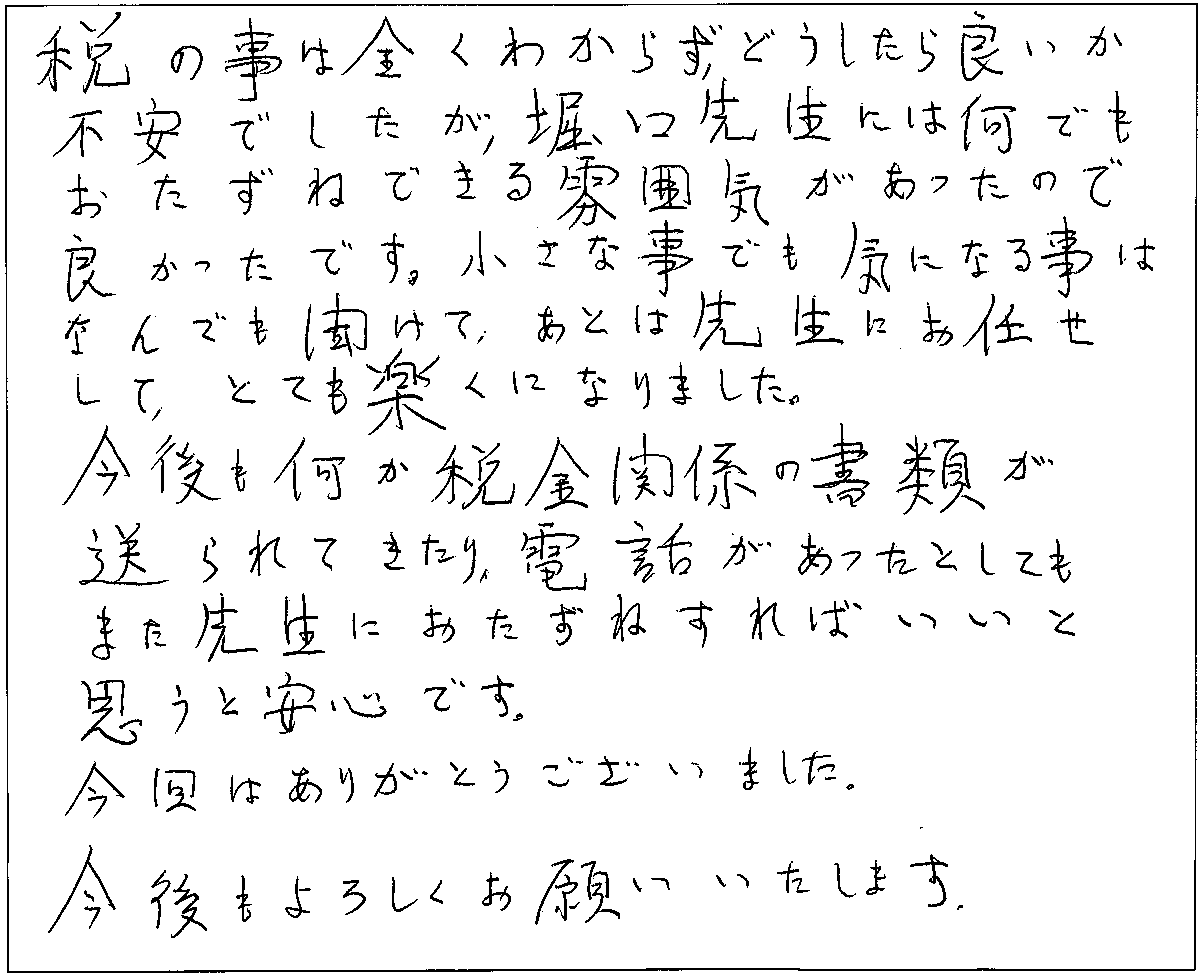 税の事は全くわからず、どうしたら良いか
不安でしたが、堀口先生には何でも
おたずねできる雰囲気があったので
良かったです。小さな事でも気になる事は
なんでも聞けて、あとは先生にお任せ
して、とても楽くになりました。
今後も何か税金関係の書類が
送られてきたり、電話があったとしても
また先生におたずねすればいいと
思うと安心です。
今回はありがとうございました。
今後もよろしくお願いいたします。